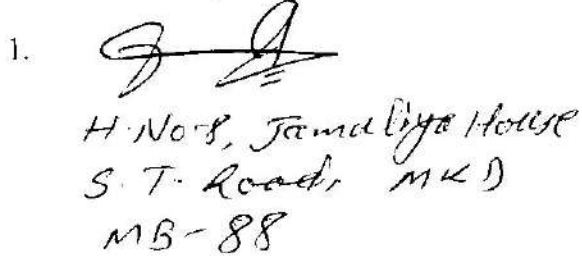 1.
H. No-8, Jamaliya House
S. T. Road, MKD
MB-88